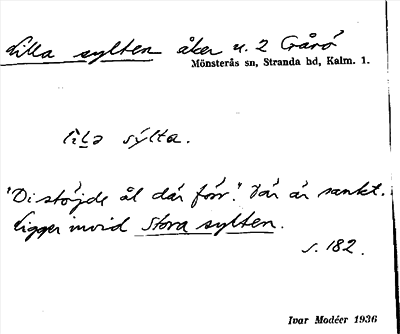 Lilla sylten åker u. 2 Crårö
Mönsterås sn, Stranda hd, Kalm. l.
lilə sýlta.
"Di stöjde ål där förr". Där är sankt.
Ligger invid Stora sylten.
s. 182.
Ivar Modéer 1936